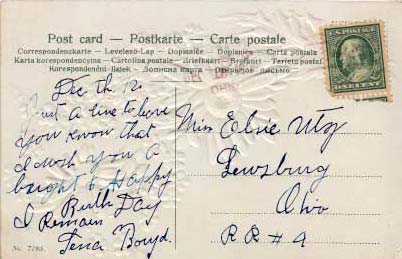 Post card — Postkarte — Carte postale
Correspondenzkarte — Levelező-Lap — Dopisnice — Dopisnica — Carta postala
Karta korespondencyjna — Cartolina postale — Briefkaart — Brefkort — Tarjeta postal
Korespondenční lístek — Дописна карта — Открытое письмо.
U.S. POSTAGE
ONE CENT
Dec th 12
Just a line to leave
you know that
I wish you a
bright & Happy
Birth Day
I Remain
Tena Boryd.
Miss Elsie Utz
Lewsburg
Ohio
R R # 4
No. 7195.